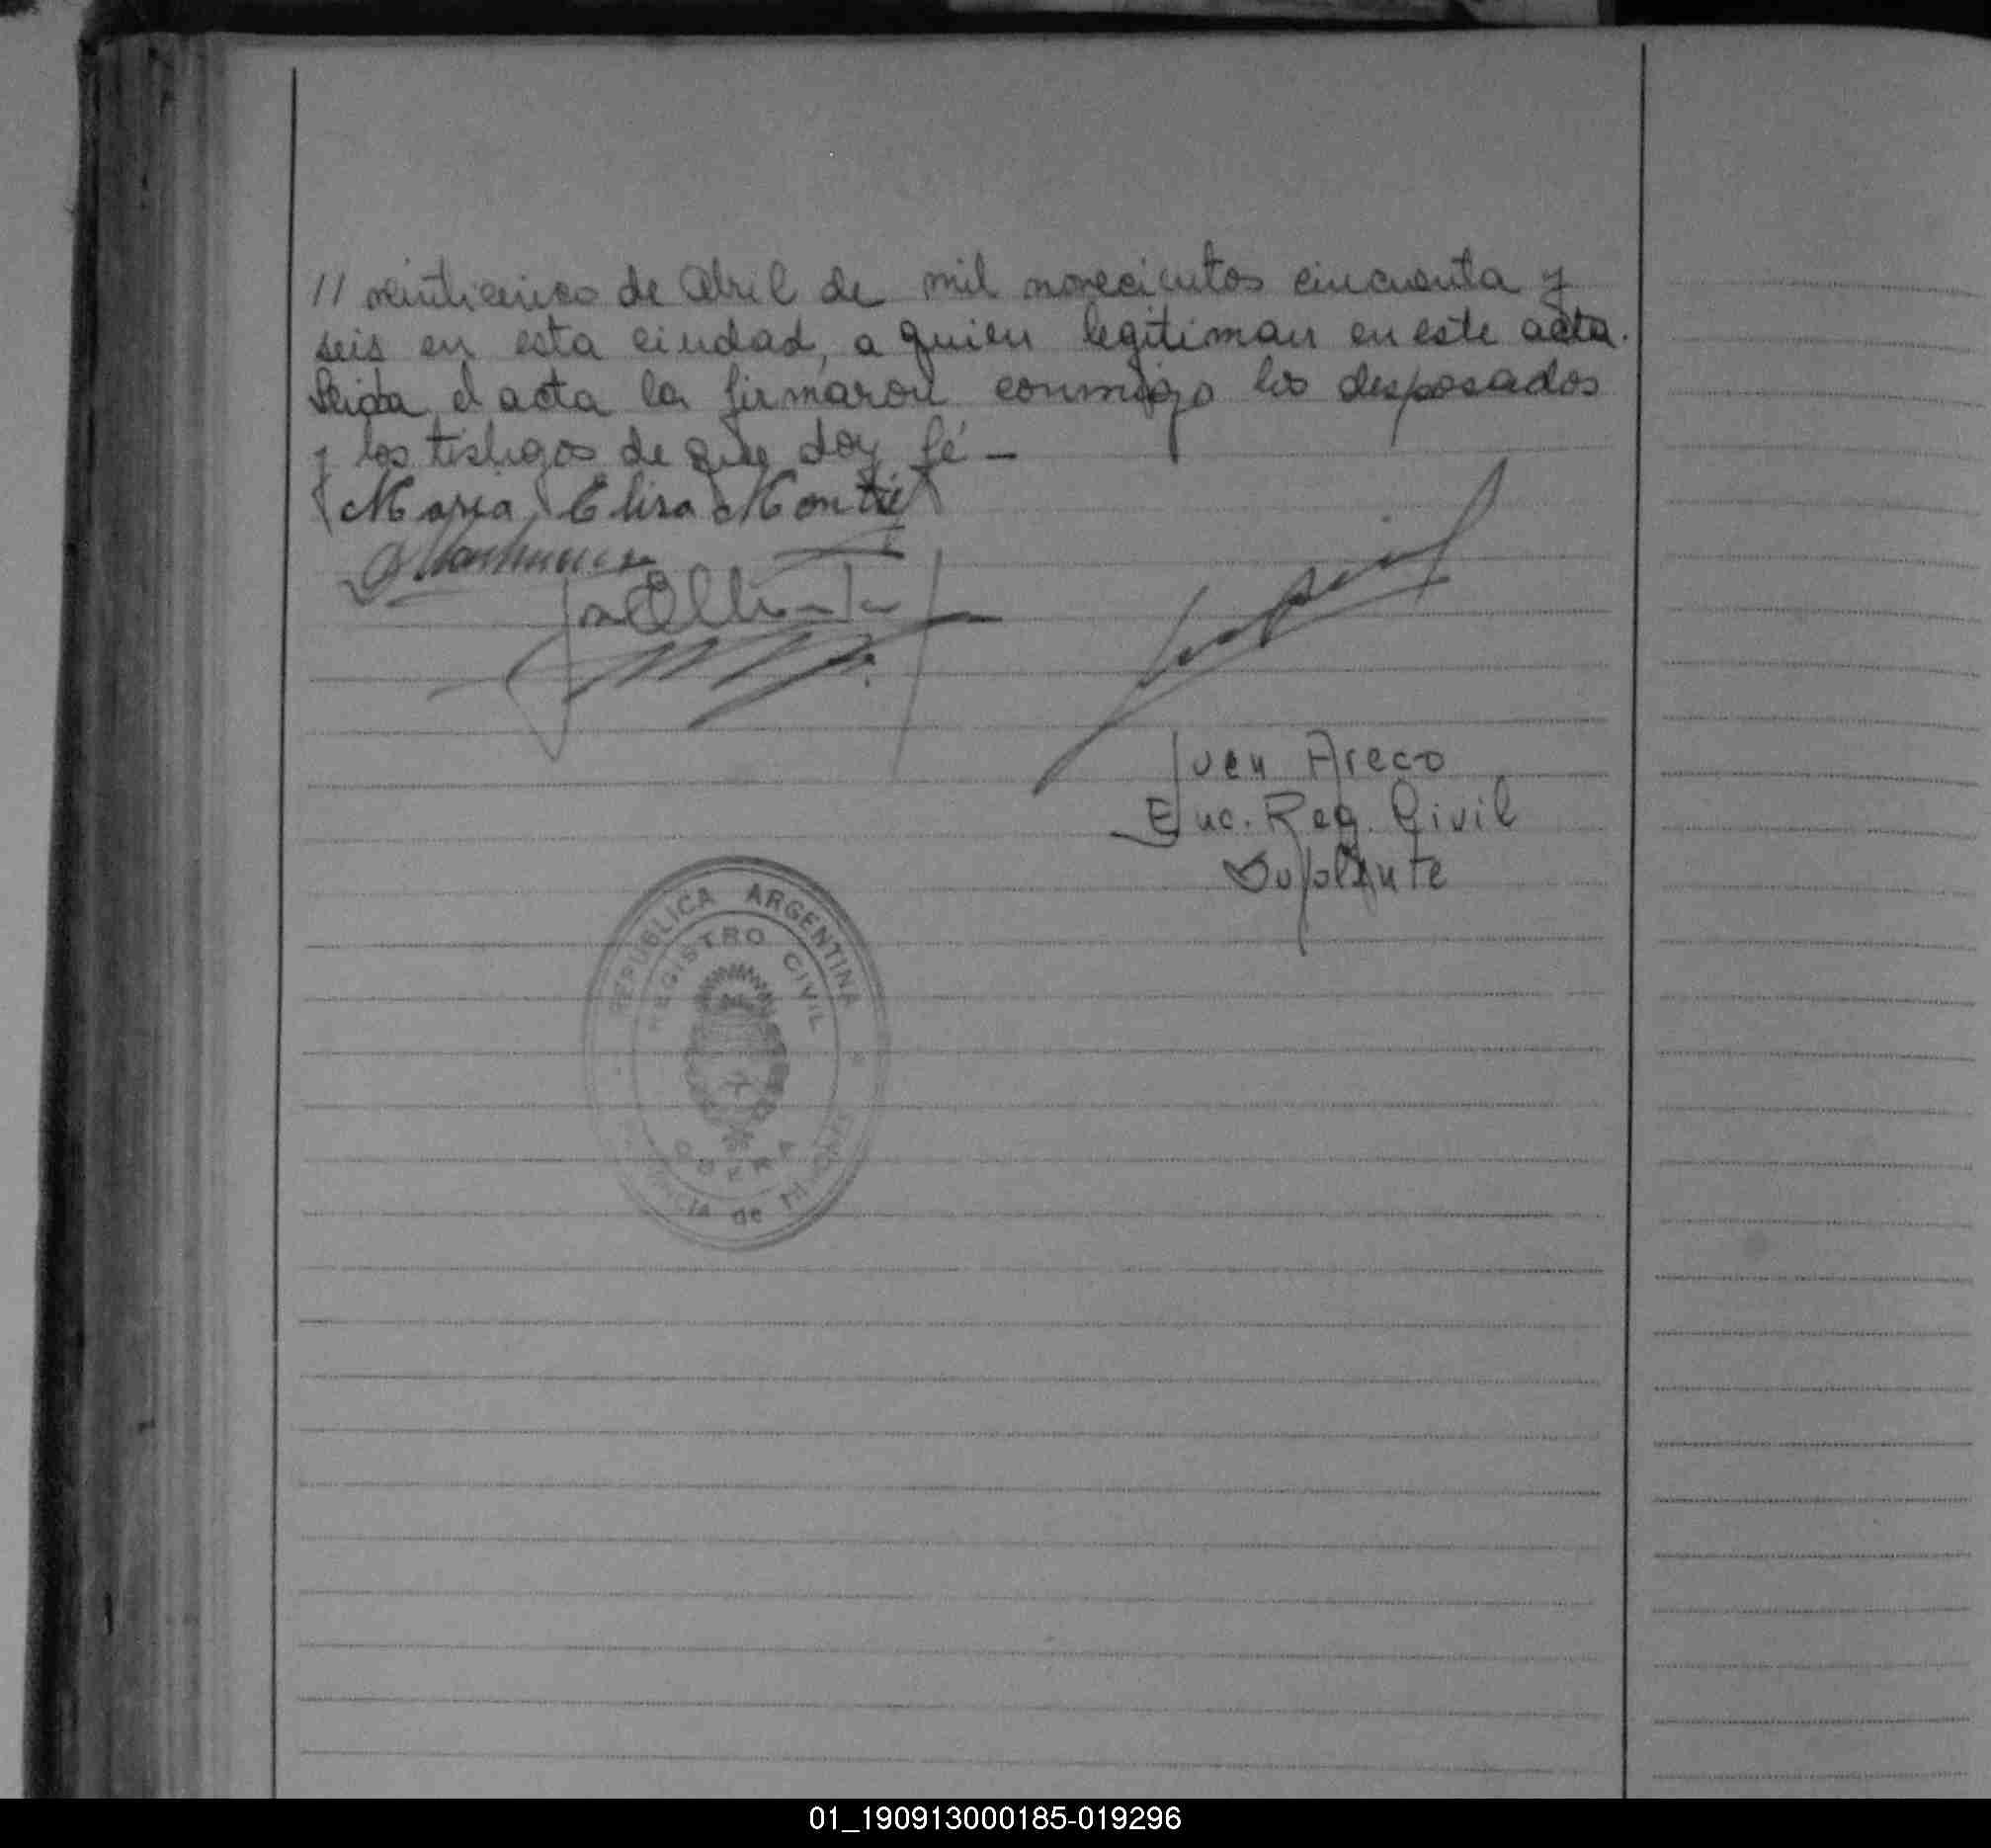 // veinticinco de Abril de mil novecientos cincuenta y
seis en esta ciudad, a quien legitiman en este acta.
Leida el acta la firmaron conmigo los desposados
y los testigos de que doy fé —
Maria Elisa Montiel
Juan Areco
Enc. Reg. Civil
Suplente
REPUBLICA ARGENTINA
REGISTRO CIVIL
OBERA
de
01_190913000185-019296